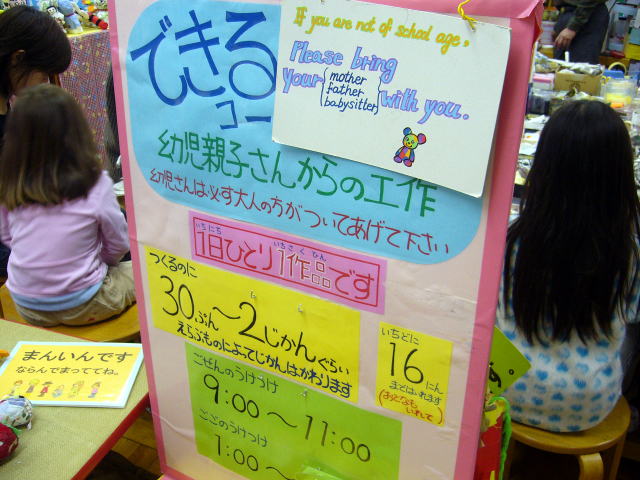 できる
コー
If you are not of school age,
Please bring
your
mother
father
babysitter
with you.
幼児親子さんからの工作
幼児さんは必ず大人の方がついてあげて下さい
いちにち いちさくひん
1日ひとり1作品です
つくるのに
30ぷん〜2じかんぐらい
えらぶものによってじかんはかわります
いちどに
16にん
まではいれます
(おとなもいれて)
ごぜんのうけつけ
9:00〜11:00
ごごのうけつけ
1:00〜
まんいんです
ならんでまっててね。